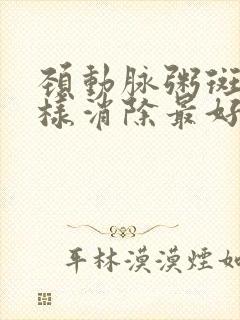 頸動脉粥斑
樣消除最好
平林漠漠煙如